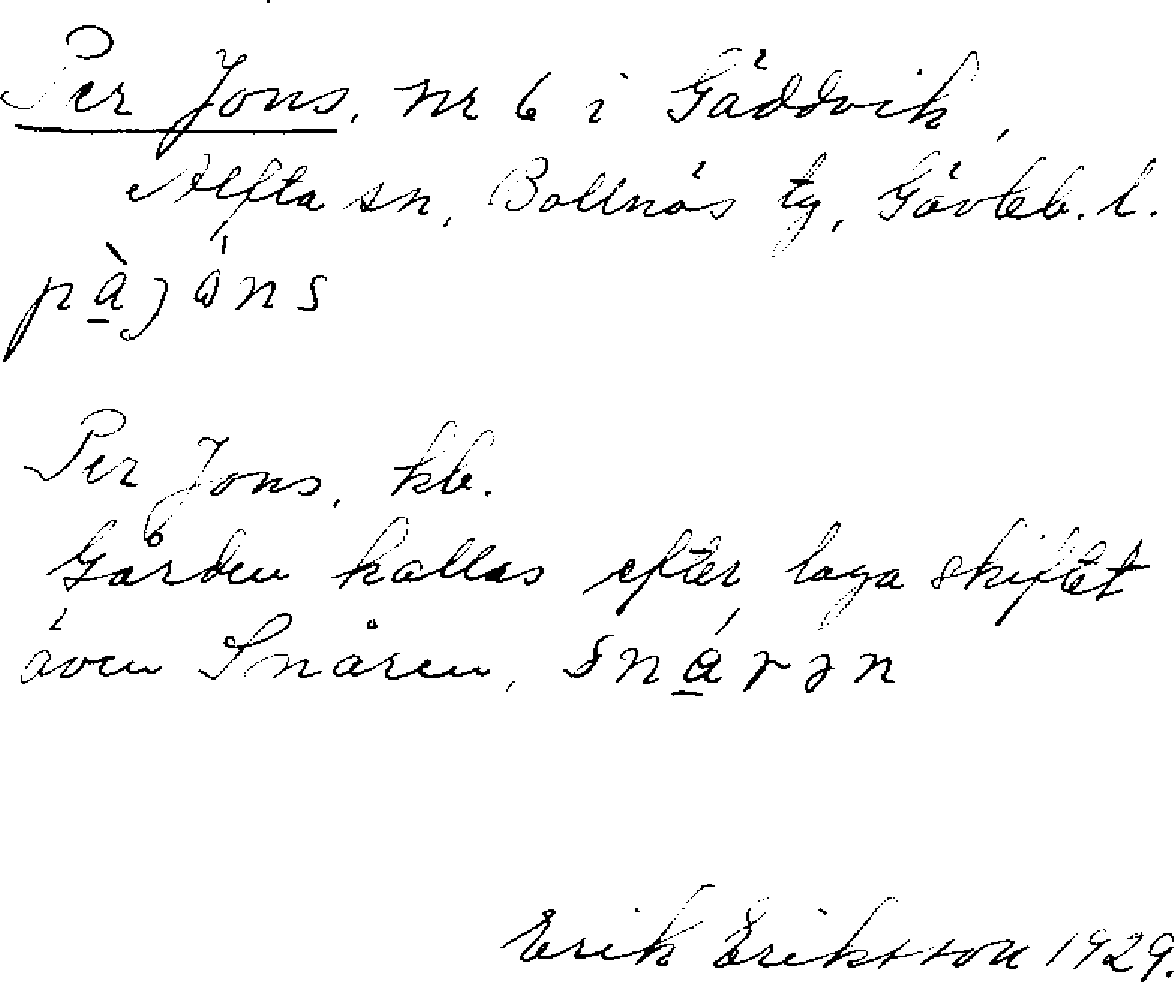 Per Jons, nr 6 i Gäddvik,
Alfta sn, Bollnäs tg, Gävleb. l.
Per Jons, kb.
Gården kallas efter laga skiftet
även Snåren,
Erik Eriksson 1929.